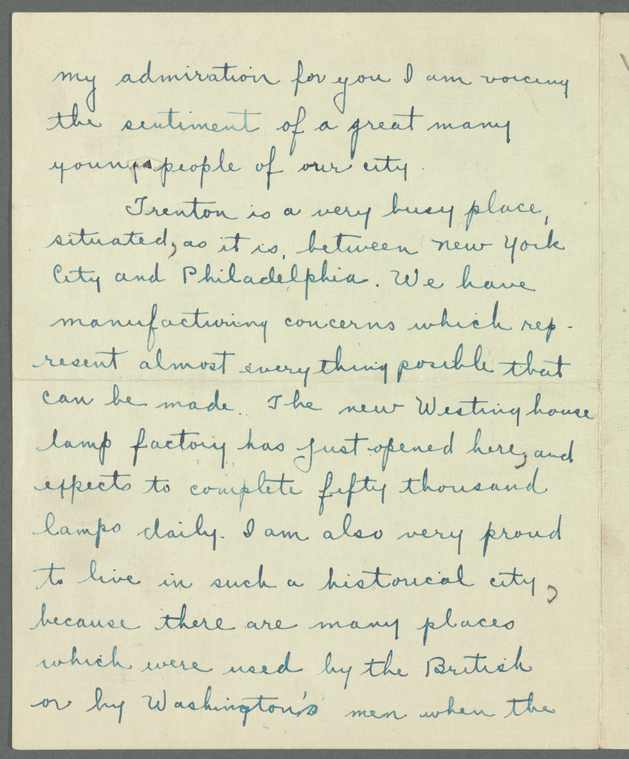 my admiration for you I am voicing
the sentiment of a great many
young people of our city.
Trenton is a very busy place,
situated, as it is, between New York
City and Philadelphia. We have
manufacturing concerns which rep-
resent almost everything possible that
can be made. The new Westinghouse
lamp factory has just opened here, and
expects to complete fifty thousand
lamps daily. I am also very proud
to live in such a historical city,
because there are many places
which were used by the British
or by Washington's men when the